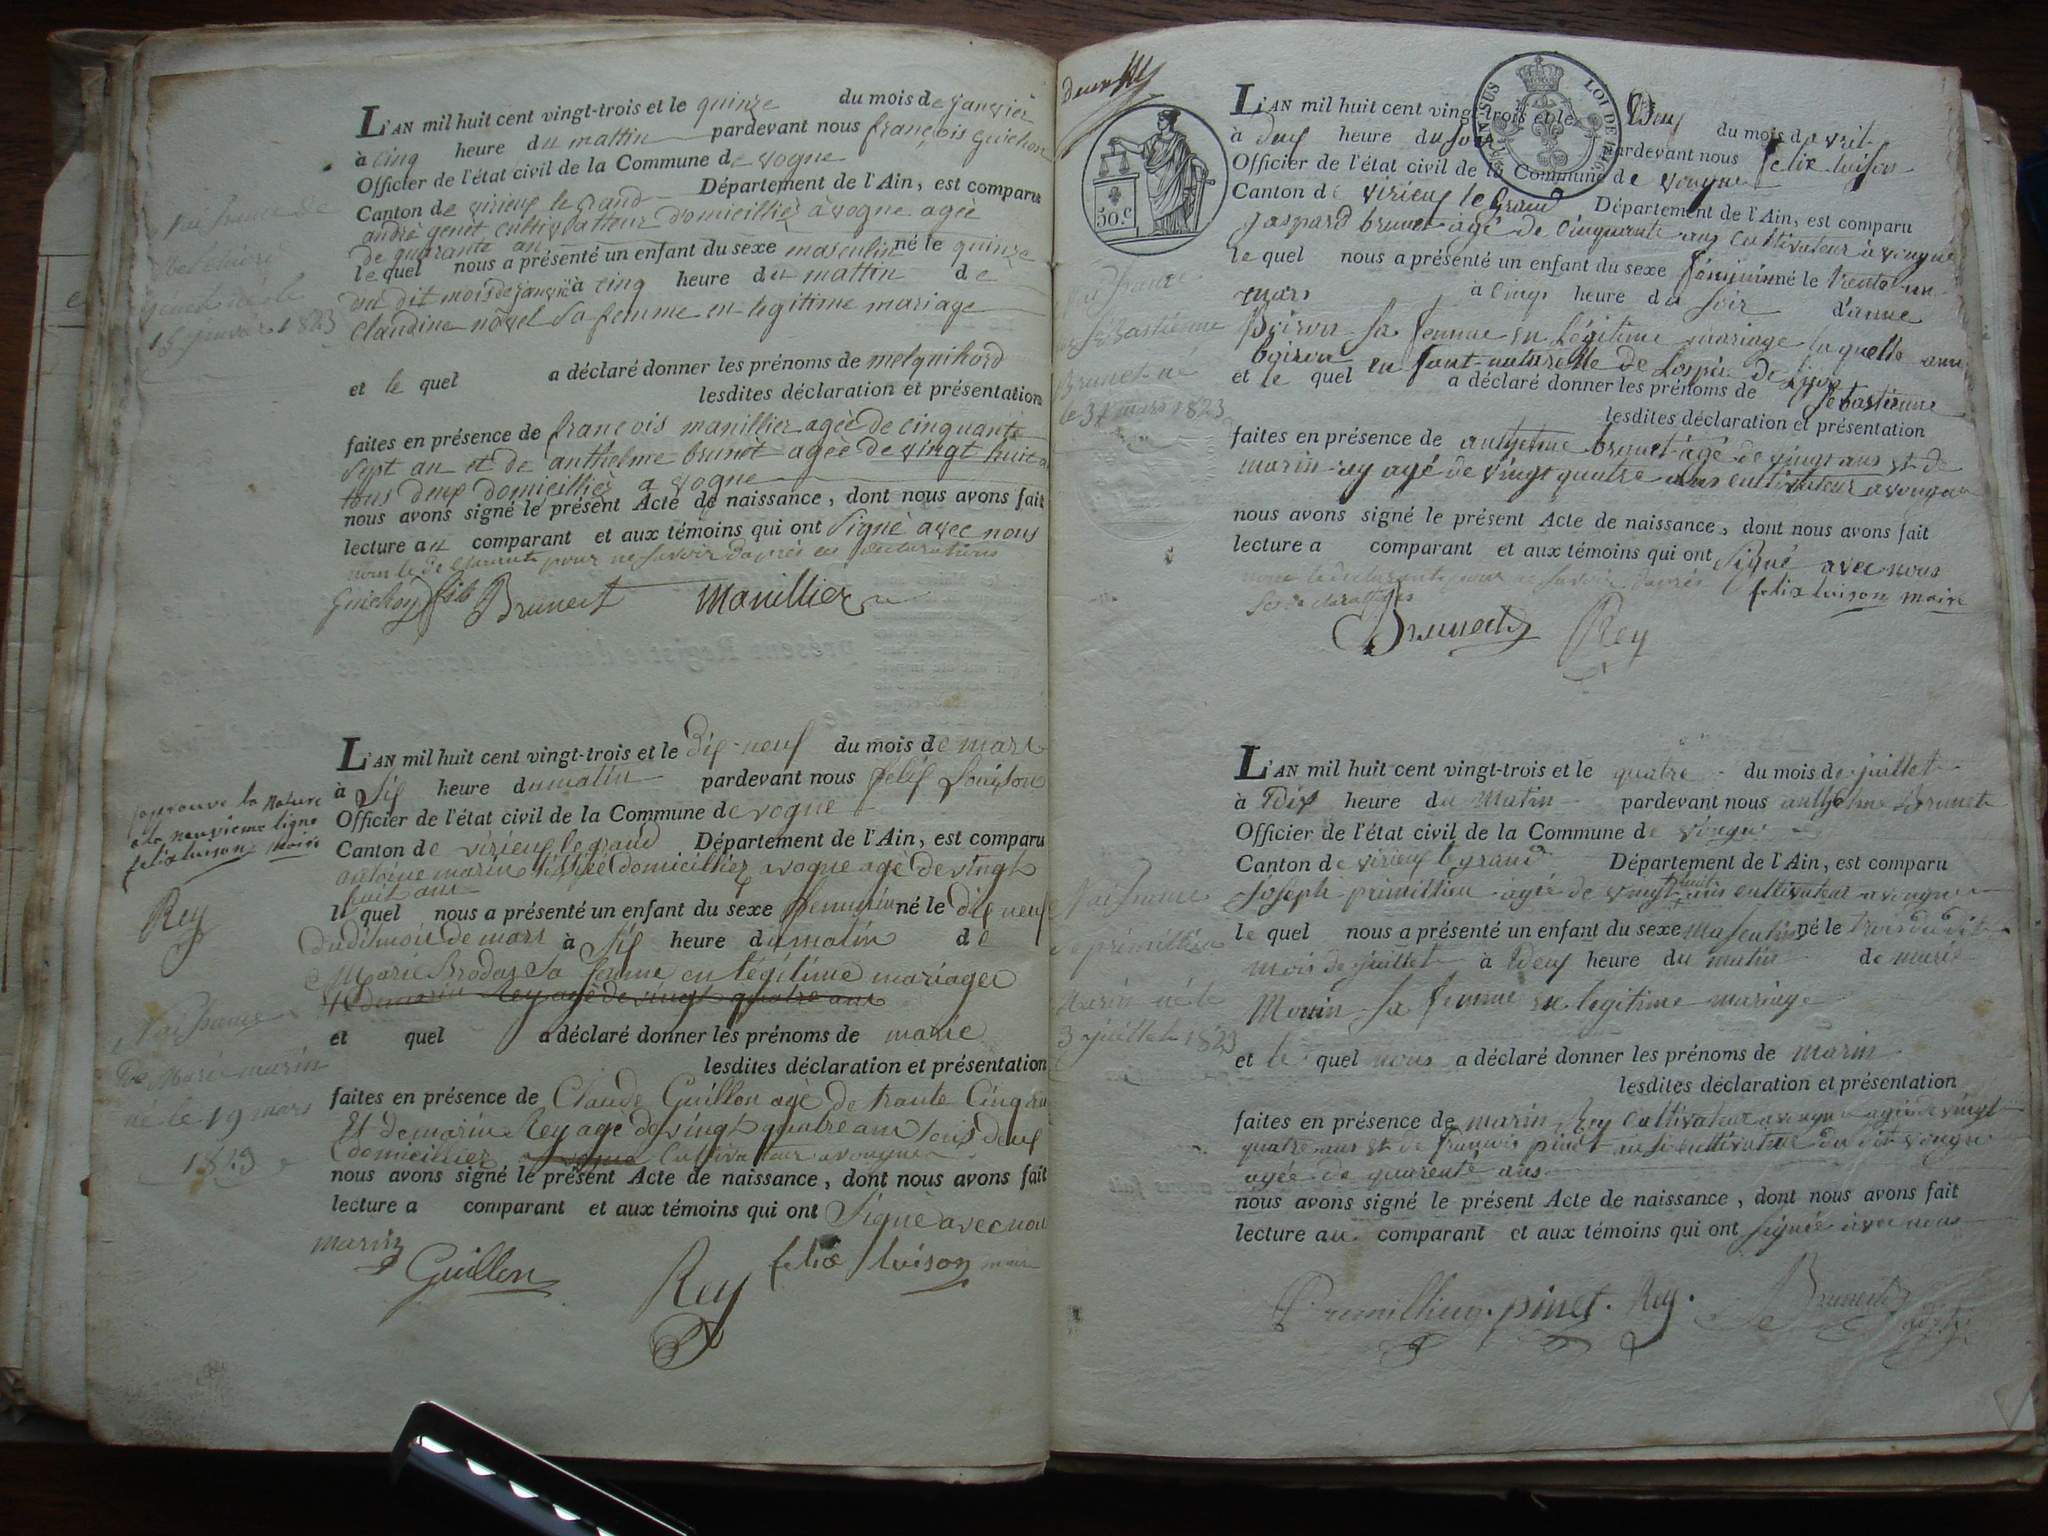 L'AN mil huit cent vingt-trois et le quinze du mois de janvier
à cinq heure du mattin pardevant nous françois guichon
Officier de l'état civil de la Commune de vogne
Canton de virieux le grand Département de l'Ain, est comparu
andré genet cultivatteur domicilliér à vogne agée
de quarante an
le quel nous a présenté un enfant du sexe masculin né le quinze
du dit mois de janvié à cinq heure du mattin de
Claudine novel sa femme en legitime mariage
et le quel a déclaré donner les prénoms de melquihord
lesdites déclaration et présentation
faites en présence de françois manillier agée de cinquante
sept an et de anthelme brunet agée de vingt huit a
tous deux domicilliér a vogne
nous avons signé le présent Acte de naissance, dont nous avons fait
lecture au comparant et aux témoins qui ont signé avec nous
non le declarant pour ne savoir d'aprés ces declarations
Guichon Brunert Manillier
Naissance de
genet né le
15 janvier 1823
L'AN mil huit cent vingt-trois et le dix-neuf du mois de mars
à six heure du matin pardevant nous felix Louison
Officier de l'état civil de la Commune de vogne
Canton de virieux le grand Département de l'Ain, est comparu
antoine marin domicillier a vogne agé de vingt
huit ans
le quel nous a présenté un enfant du sexe femminin né le dix neuf
du dit mois de mars à six heure du matin de
Marie Brodas sa femme en légitime mariage
Et de marin Rey agé de vingt quatre ans
et quel a déclaré donner les prénoms de marie
lesdites déclaration et présentation
faites en présence de Claude Guillon agé de trante Cinq an
Et de marin Rey agé de vingt quatre ans tous deux
domicillier a vogne Cultivateur a vougne
nous avons signé le présent Acte de naissance, dont nous avons fait
lecture a comparant et aux témoins qui ont Signé avec nou
marin Guillon Rey felix luison maire
japrouve la Rature
a la neuvieme ligne
felix luison maire
Rey
Naissance
De Marie marin
né le 19 mars
1823
50.c
LOI DE 1816
L'AN mil huit cent vingt-trois et le Deux du mois d'avril
à deux heure du soir pardevant nous felix luison
Officier de l'état civil de la Commune de vougne
Canton de virieux le Grand Département de l'Ain, est comparu
Jaspard brunet agé de Cinquante ans Cultivateur à vougne
le quel nous a présenté un enfant du sexe féminin né le trente un
mars à cinq heure du soir d'anne
Boiron sa femme en légitime mariage laquelle anne
boiron enfant naturelle de l'ospice de Lion
et le quel a déclaré donner les prénoms de Sébastienne
lesdites déclaration et présentation
faites en présence de anthelme brunet agé de vingt ans et de
marin rey agé de vingt quatre ans cultivateur a vougne
nous avons signé le présent Acte de naissance, dont nous avons fait
lecture a comparant et aux témoins qui ont signé avec nous
non le declarant pour ne savoir d'aprés
felix luison maire
Brunert Rey
Naissance
de Sébastienne
Brunet né
le 31 mars 1823
L'AN mil huit cent vingt-trois et le quatre du mois de juillet
à Dix heure du Matin pardevant nous anthelme Brunet
Officier de l'état civil de la Commune de vougne
Canton de virieux le grand Département de l'Ain, est comparu
Joseph primillieu agée de vingt huit ans cultivateur a vougne
le quel nous a présenté un enfant du sexe Masculin né le trois du dit
mois de juillet à Deux heure du matin de marie
Monin sa femme en legitime mariage
et le quel nous a déclaré donner les prénoms de marin
lesdites déclaration et présentation
faites en présence de marin Rey Cultivateur a vougne agée de vingt
quatre ans et de françois pinet aussi cultivateur du dit vougne
agée de quarente ans
nous avons signé le présent Acte de naissance, dont nous avons fait
lecture au comparant et aux témoins qui ont signée avec nous
Premillieu. pinet. Rey. Brunert
Naissance
de primillieu
Marin né le
3 juillet 1823